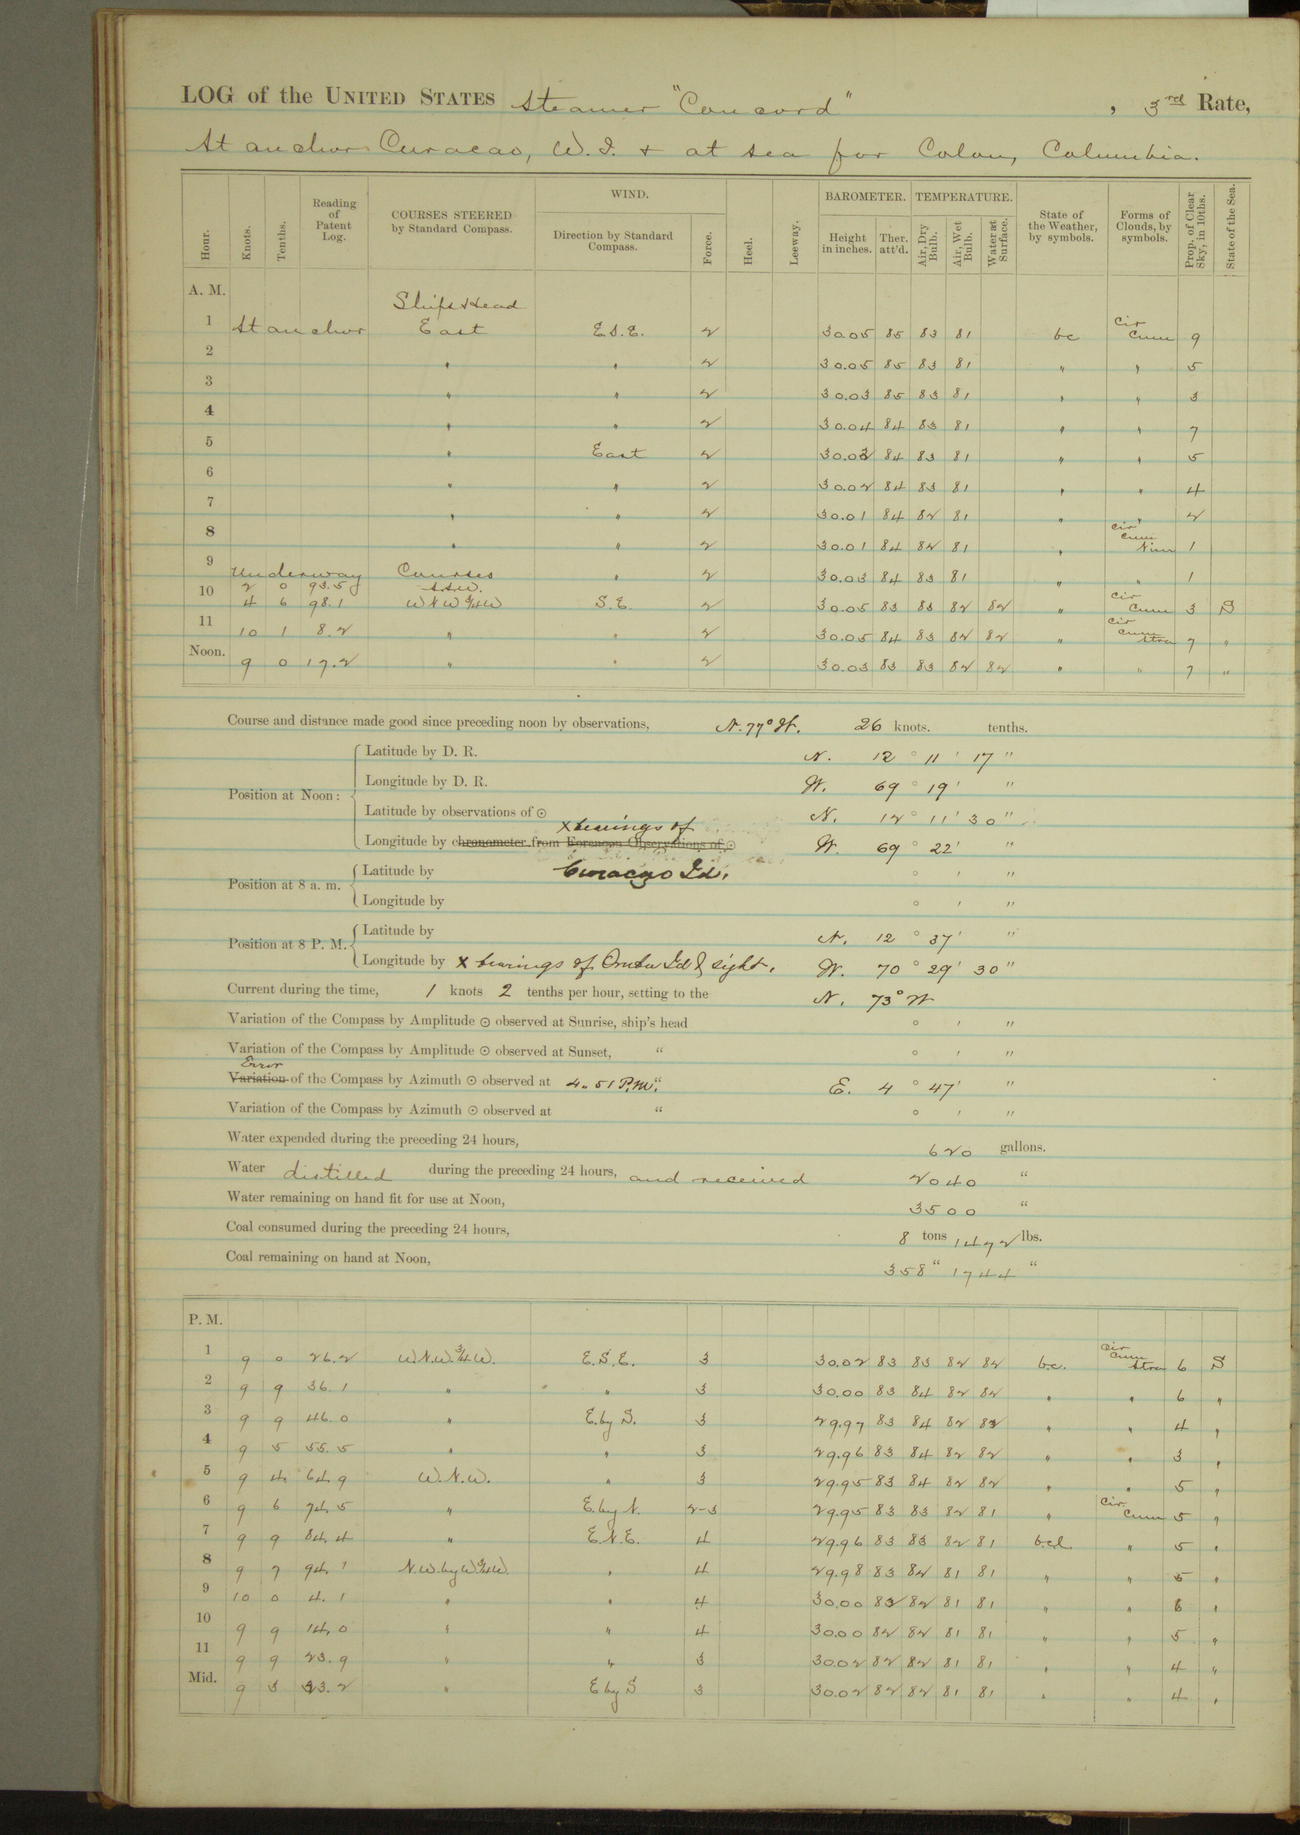 LOG of the UNITED STATES Steamer "Concord", 3rd Rate,
At anchor Curacao, W. I. & at sea for Colon, Columbia.
Hour. Knots. Tenths. Reading of Patent Log. COURSES STEERED by Standard Compass. WIND. Direction by Standard Compass. Force. Heel. Leeway. BAROMETER. Height in inches. Ther. att'd. TEMPERATURE. Air, Dry Bulb. Air, Wet Bulb. Water at Surface. State of the Weather, by symbols. Forms of Clouds, by symbols. Prop. of Clear Sky, in 10ths. State of the Sea.
A. M.
Ships Head
1 At anchor East E.S.E. 2 30.05 85 83 81 bc cir cum 9
2 " " 2 30.05 85 83 81 " " 5
3 " " 2 30.03 85 83 81 " " 3
4 " " 2 30.04 84 83 81 " " 7
5 " East 2 30.02 84 83 81 " " 5
6 " " 2 30.02 84 83 81 " " 4
7 " " 2 30.01 84 82 81 " " 2
8 " " 2 30.01 84 82 81 " cir cum Nim 1
9 Underway Courses " 2 30.03 84 83 81 " " 1
2 0 93.5 S.S.W.
10 4 6 98.1 WNW 3/4 W S.E. 2 30.05 83 83 82 82 " cir cum 3 S
11 10 1 8.2 " " 2 30.05 84 83 82 82 " cir cum stra 7 "
Noon. 9 0 17.2 " " 2 30.03 83 83 82 82 " " 7 "
Course and distance made good since preceding noon by observations, N. 77° W. 26 knots. tenths.
Position at Noon:
Latitude by D. R. N. 12 ° 11 ' 17 "
Longitude by D. R. W. 69 ° 19 ' "
Latitude by observations of ☉ N. 12 ° 11 ' 30 "
x bearings of
Longitude by chronometer from Forenoon Observations of ☉ W. 69 ° 22 ' "
Curacao Id.
Position at 8 a. m.
Latitude by ° ' "
Longitude by ° ' "
Position at 8 P. M.
Latitude by N. 12 ° 37 ' "
Longitude by x bearings of Oruba Id & light. W. 70 ° 29 ' 30 "
Current during the time, 1 knots 2 tenths per hour, setting to the N. 73° W
Variation of the Compass by Amplitude ☉ observed at Sunrise, ship's head ° ' "
Variation of the Compass by Amplitude ☉ observed at Sunset, " ° ' "
Error
Variation of the Compass by Azimuth ☉ observed at 4.51 P.M. " E. 4 ° 47 ' "
Variation of the Compass by Azimuth ☉ observed at " ° ' "
Water expended during the preceding 24 hours, 620 gallons.
Water distilled during the preceding 24 hours, and received 2040 "
Water remaining on hand fit for use at Noon, 3500 "
Coal consumed during the preceding 24 hours, 8 tons 1472 lbs.
Coal remaining on hand at Noon, 358 " 1744 "
P. M.
1 9 0 26.2 W.N.W. 3/4 W. E.S.E. 3 30.02 83 83 82 82 b.c. cir cum stra 6 S
2 9 9 36.1 " " 3 30.00 83 84 82 82 " " 6 "
3 9 9 46.0 " E. by S. 3 29.97 83 84 82 82 " " 4 "
4 9 5 55.5 " " 3 29.96 83 84 82 82 " " 3 "
5 9 4 64.9 W.N.W. " 3 29.95 83 84 82 82 " " 5 "
6 9 6 74.5 " E. by N. 2-3 29.95 83 83 82 81 " cir cum 5 "
7 9 9 84.4 " E.N.E. 4 29.96 83 83 82 81 b.c.l. " 5 "
8 9 7 94.1 N.W. by W. 3/4 W. " 4 29.98 83 82 81 81 " " 5 "
9 10 0 4.1 " " 4 30.00 82 82 81 81 " " 6 "
10 9 9 14.0 " " 4 30.00 82 82 81 81 " " 5 "
11 9 9 23.9 " " 3 30.02 82 82 81 81 " " 4 "
Mid. 9 3 33.2 " E by S 3 30.02 82 82 81 81 " " 4 "